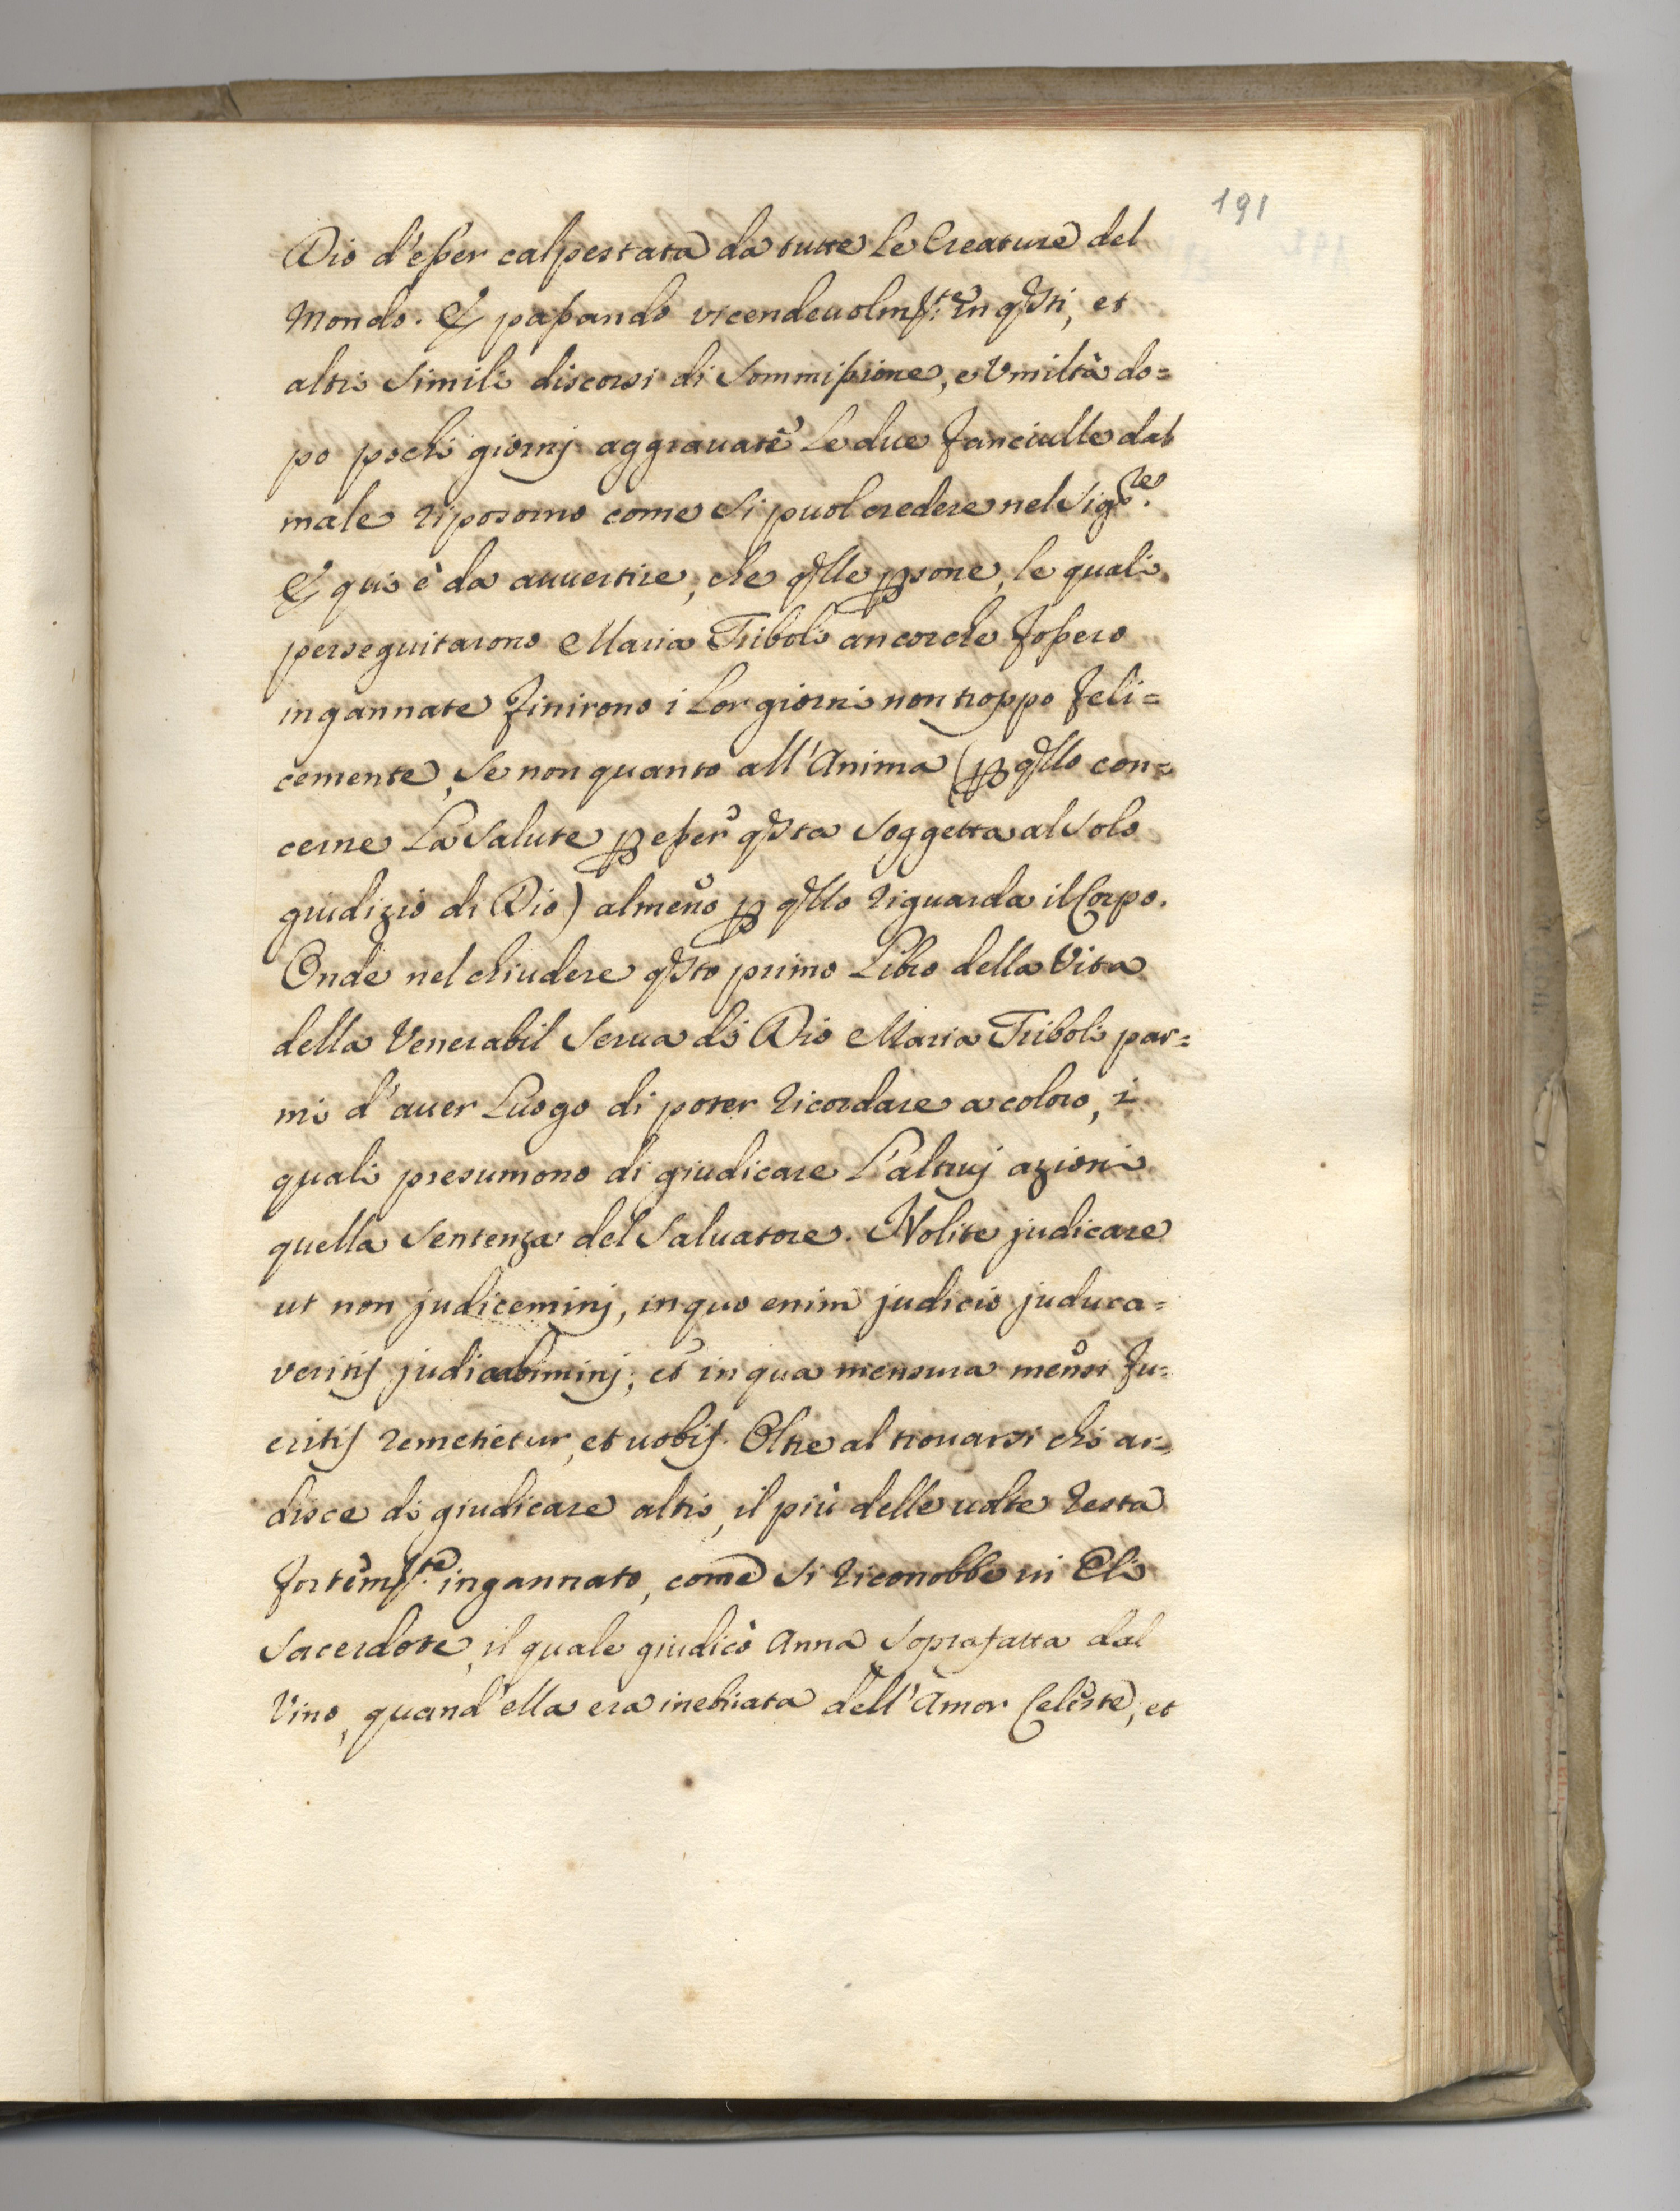 191
Dio d'esser calpestata da tutte le Creature del
Mondo. E passando vicendevolm.te in q̃sti, et
altri simili discorsi di sommissione, e Umiltà do=
po pochi giornj aggrauate le due fanciulle dal
male riposorno come si puol credere nel Sig.re
E qui è da auuertire, che q̃lle ꝑsone, le quali
perseguitarono Maria Triboli ancorche fossero
ingannate finirono i lor giorni non troppo feli=
cemente, se non quanto all'Anima (ꝑ q̃llo con=
cerne la salute ꝑ esser q̃sta soggetta al solo
giudizio di Dio) almeno ꝑ q̃llo riguarda il Corpo.
Onde nel chiudere q̃sto primo Libro della Vita
della Venerabil Serua di Dio Maria Triboli par=
mi d'auer luogo di poter ricordare a coloro, i
quali presumono di giudicare l'altruj azioni
quella sentenza del Saluatore. Nolite judicare
ut non judiceminj, in quo enim judicio juduca=
veritis judicabiminj, et in qua mensura mensi fu=
eritis remetietur, et uobis. Oltre al trouarsi chi ar=
disce di giudicare altri, il più delle uolte resta
fortem.te ingannato, come si riconobbe in Eli
Sacerdote, il quale giudicò Anna soprafatta dal
Vino, quand'ella era inebriata dell'Amor Celeste, et